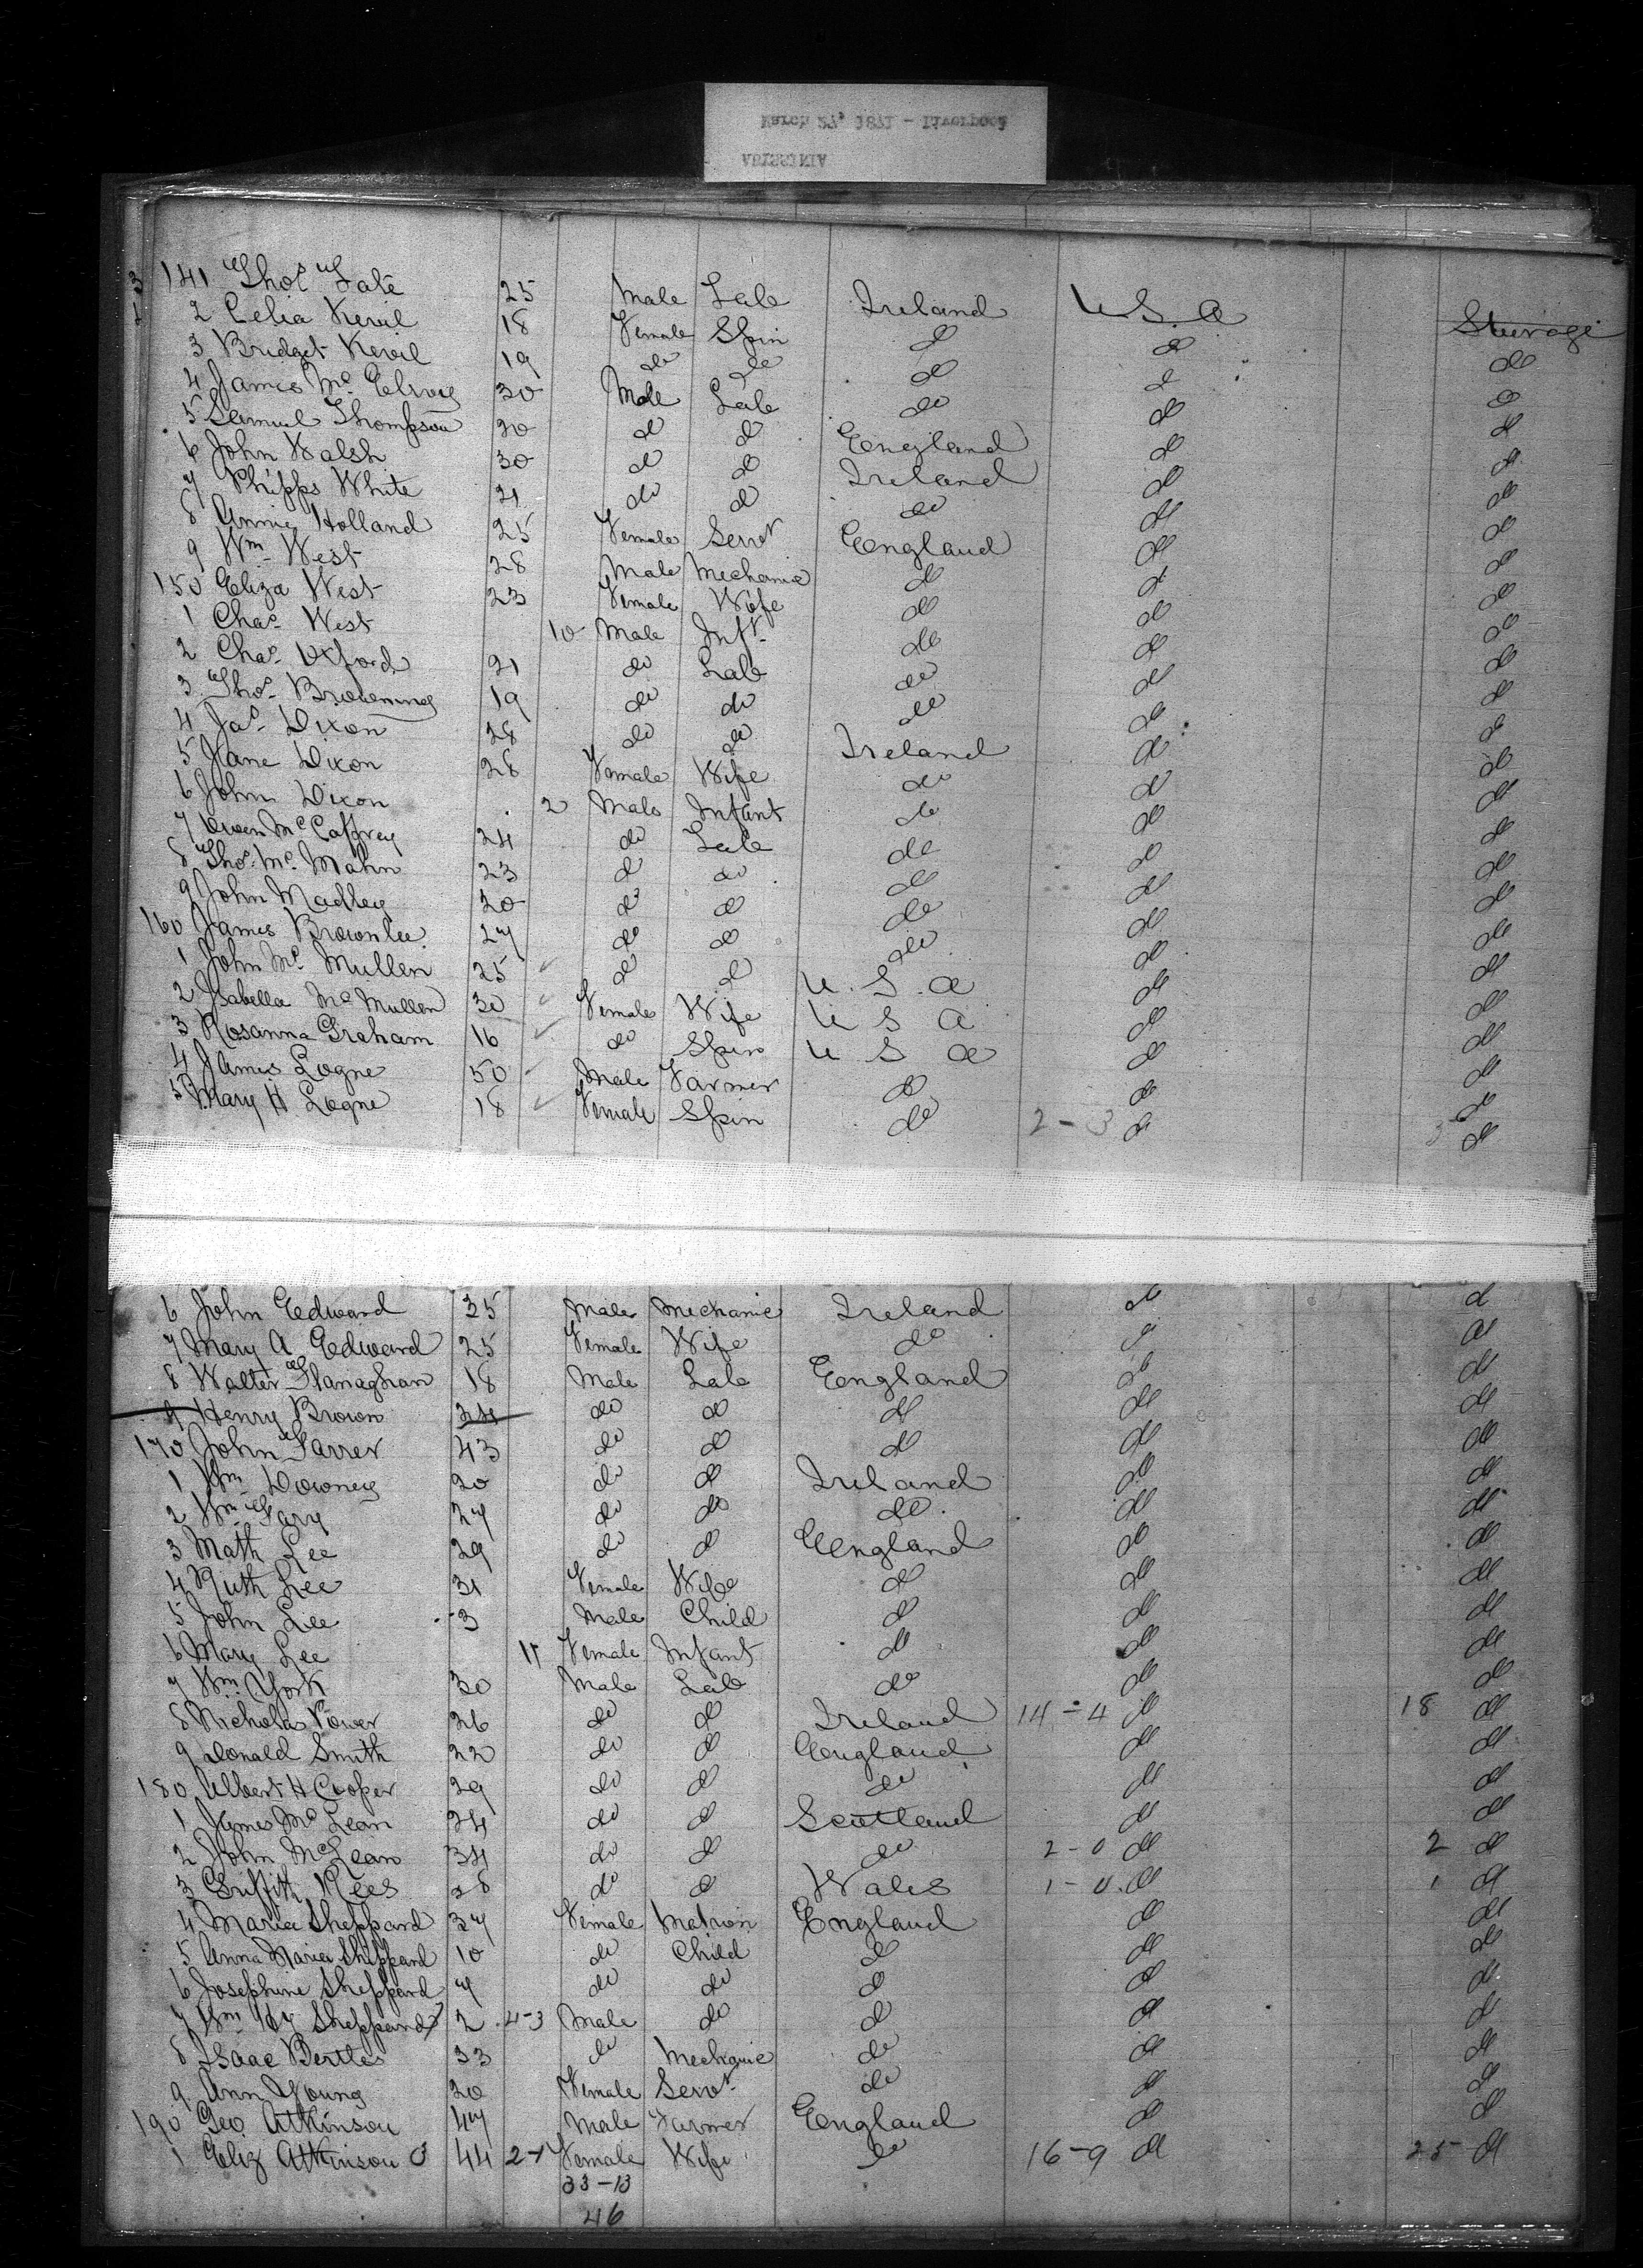 ABISSINIA
March 27, 1871 - Liverpool
141 Thos Tate 25 Male Lab Ireland U.S.A Steerage
2 Celia Kevil 18 Female Spin do do do
3 Bridget Kevil 19 do do do do do
4 James Mc Elroy 30 Male Lab do do do
5 Samuel Thompson 20 do do England do do
6 John Walsh 30 do do Ireland do do
7 Phipps White 21 do do do do do
8 Annie Holland 25 Female Servt England do do
9 Wm West 28 Male Mechanic do do do
150 Eliza West 23 Female Wife do do do
1 Chas West 10 Male Inft do do do
2 Chas Oxford 21 do Lab do do do
3 Thos Browning 19 do do do do do
4 Jas Dixon 28 do do Ireland do do
5 Jane Dixon 28 Female Wife do do do
6 John Dixon 2 Male Infant do do do
7 Owen Mc Caffrey 24 do Lab do do do
8 Thos Mc Mahn 23 do do do do do
9 John Madley 20 do do do do do
160 James Brownlee 27 do do do do do
1 John Mc Mullen 25 do do U.S.A do do
2 Isabella Mc Mullen 30 Female Wife U S A do do
3 Rosanna Graham 16 do Spin U S A do do
4 James Logne 50 Male Farmer do do do
5 Mary H Logne 18 Female Spin do 2-3 do do
6 John Edward 35 Male Mechanic Ireland do do
7 Mary A Edward 25 Female Wife do do do
8 Walter Flanaghan 18 Male Lab England do do
9 Henry Brown 24 do do do do do
170 John Farrer 43 do do do do do
1 Wm Downey 20 do do Ireland do do
2 Wm Fary 27 do do do do do
3 Math Lee 29 do do England do do
4 Ruth Lee 31 Female Wife do do do
5 John Lee 3 Male Child do do do
6 Mary Lee 11 Female Infant do do do
7 Wm York 30 Male Lab do do do
8 Nicholas Power 26 do do Ireland 14-4 do 18 do
9 Donald Smith 22 do do England do do
180 Albert H Cooper 29 do do do do do
1 James Mc Lean 24 do do Scotland do do
2 John McLean 34 do do do 2-0 do 2 do
3 Griffith Rees 28 do do Wales 1-0 do 1 do
4 Maria Sheppard 37 Female Matron England do do
5 Anna Maria Sheppard 10 do Child do do do
6 Josephine Sheppard 7 do do do do do
7 Wm Hy Sheppard 2 4-3 Male do do do do
8 Isaac Bertles 33 do Mechanic do do do
9 Ann Young 20 Female Servt do do do
190 Geo Atkinson 47 Male Farmer England do do
1 Eliz Atkinson 44 2-1 Female Wife do 16-9 do 25 do
33-13
46